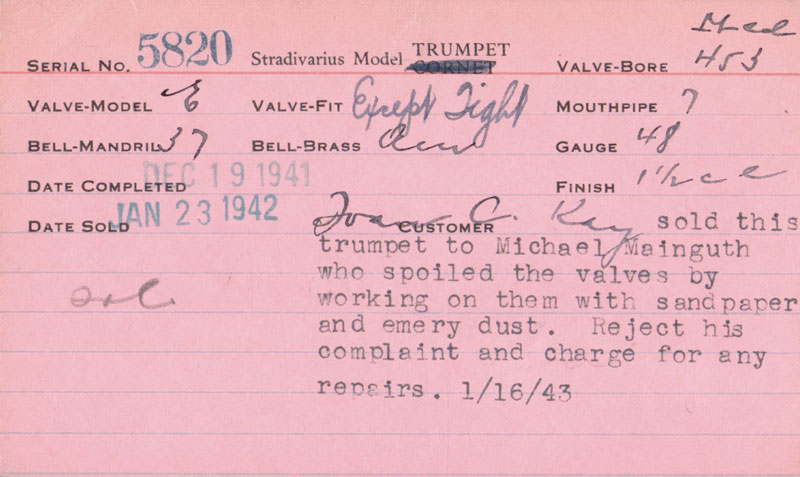 Med
SERIAL NO. 5820 Stradivarius Model TRUMPET CORNET VALVE-BORE 453
VALVE-MODEL E VALVE-FIT Except Tight MOUTHPIPE 7
BELL-MANDRIL 37 BELL-BRASS GAUGE 48
DATE COMPLETED DEC 19 1941 FINISH
DATE SOLD JAN 23 1942 CUSTOMER C. Kay sold this
trumpet to Michael Mainguth
who spoiled the valves by
working on them with sandpaper
and emery dust. Reject his
complaint and charge for any
repairs. 1/16/43